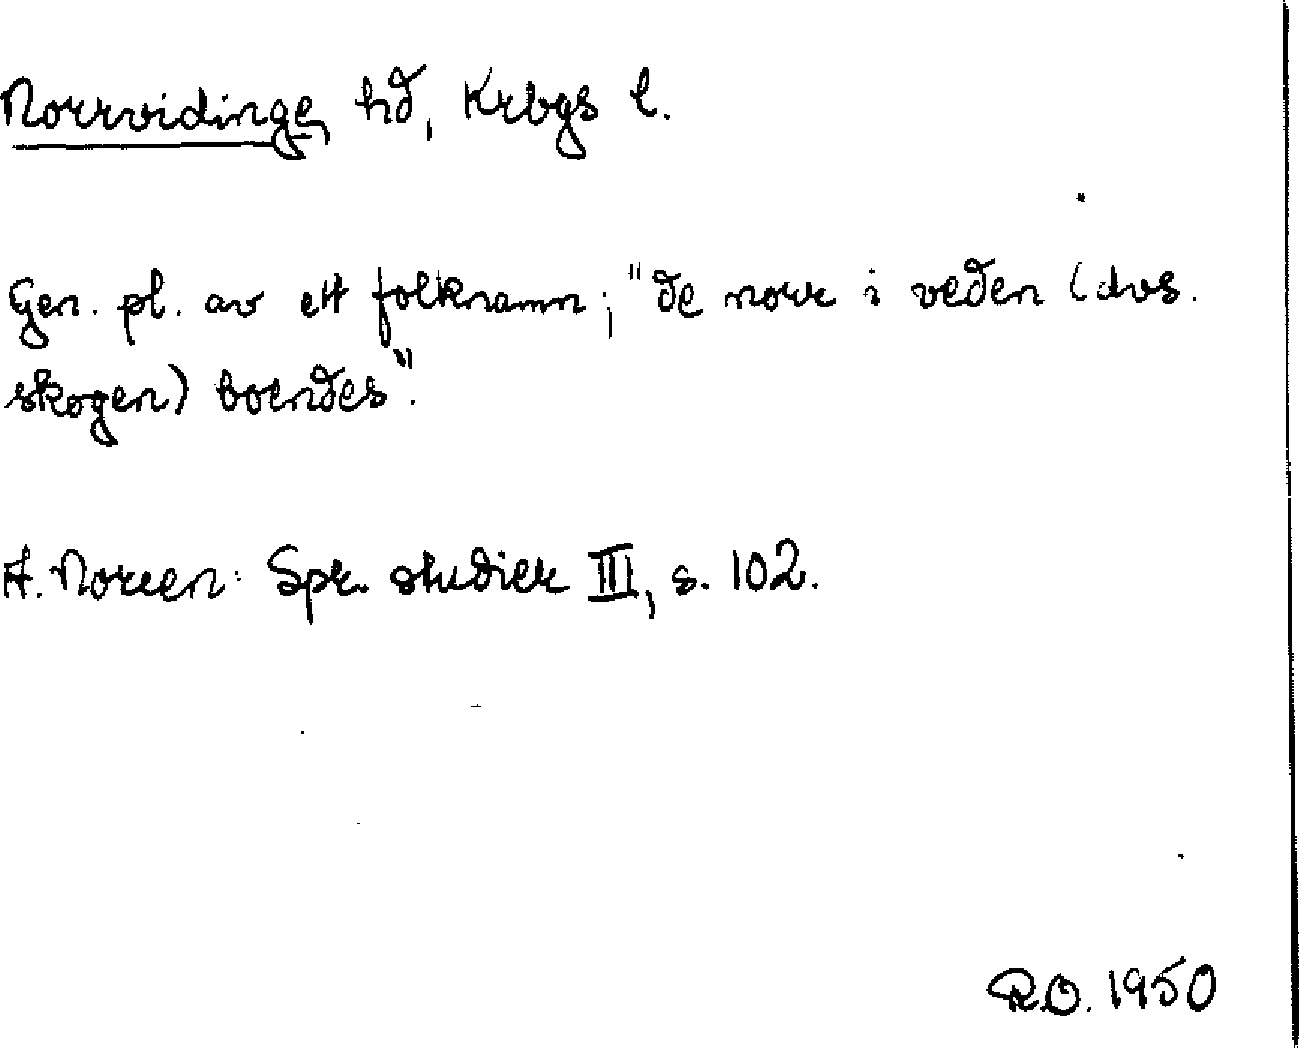 Norrvidinge hd, Krbgs l.
Gen. pl. av ett folknamn; "de norr i veden (dvs.
skogen) boendes".
A. Noreen: Spr. studier III, s. 102.
R.O. 1950